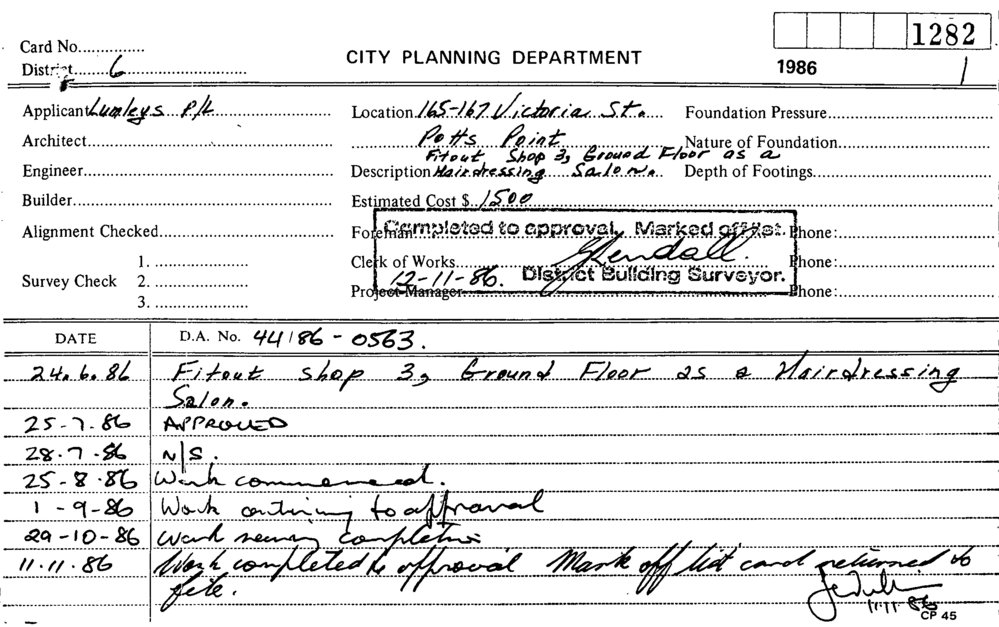 1282
Card No...............
CITY PLANNING DEPARTMENT
District........6..............................
1986 1
Applicant Lumleys P/L
Location 165-167 Victoria St.
Foundation Pressure
Architect
Potts Point
Nature of Foundation
Fitout Shop 3, Ground Floor as a
Engineer
Description Hairdressing Salon.
Depth of Footings
Builder
Estimated Cost $ 1500
Completed to approval. Marked off list.
Alignment Checked
Foreman
Phone:
1.
Clerk of Works
Phone:
Survey Check 2.
12-11-86. District Building Surveyor.
Project Manager
Phone:
3.
DATE D.A. No. 44/86-0563.
24.6.86 Fitout shop 3, Ground Floor as a Hairdressing
Salon.
25-7.86 APPROVED
28.7.86 N/S.
25-8.86 Work commenced.
1-9-86 Work continuing to approval
29-10-86 Work nearing completion
11.11.86 Work completed to approval Mark off list card returned to
file.
11.11.86
CP 45